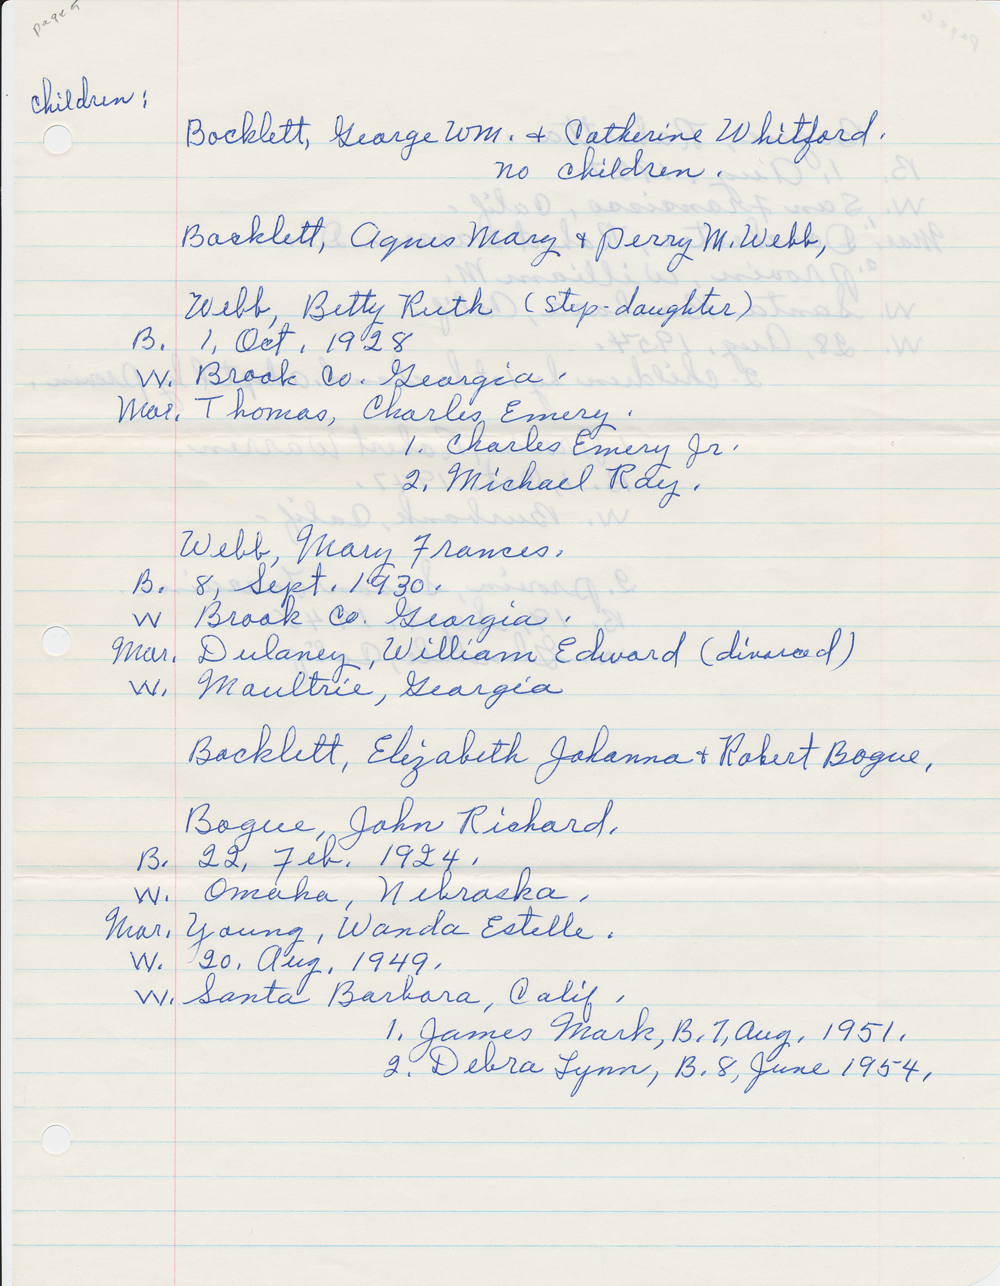 page 5
children:
Bocklett, George Wm. + Catherine Whitford.
no children.
Bocklett, Agnes Mary + Perry M. Webb,
Webb, Betty Ruth (step-daughter)
B. 1, Oct. 1928
W. Brook Co. Georgia.
Mar. Thomas, Charles Emery.
1. Charles Emery Jr.
2. Michael Ray.
Webb, Mary Frances.
B. 8, Sept. 1930.
W Brook Co. Georgia.
Mar. Dulaney, William Edward (divorced)
W. Moultrie, Georgia
Bocklett, Elizabeth Johanna + Robert Bogue,
Bogue, John Richard.
B. 22, Feb. 1924.
W. Omaha, Nebraska.
Mar. Young, Wanda Estelle.
W. 20, Aug. 1949.
W. Santa Barbara, Calif.
1. James Mark, B. 7, Aug. 1951.
2. Debra Lynn, B. 8, June 1954,